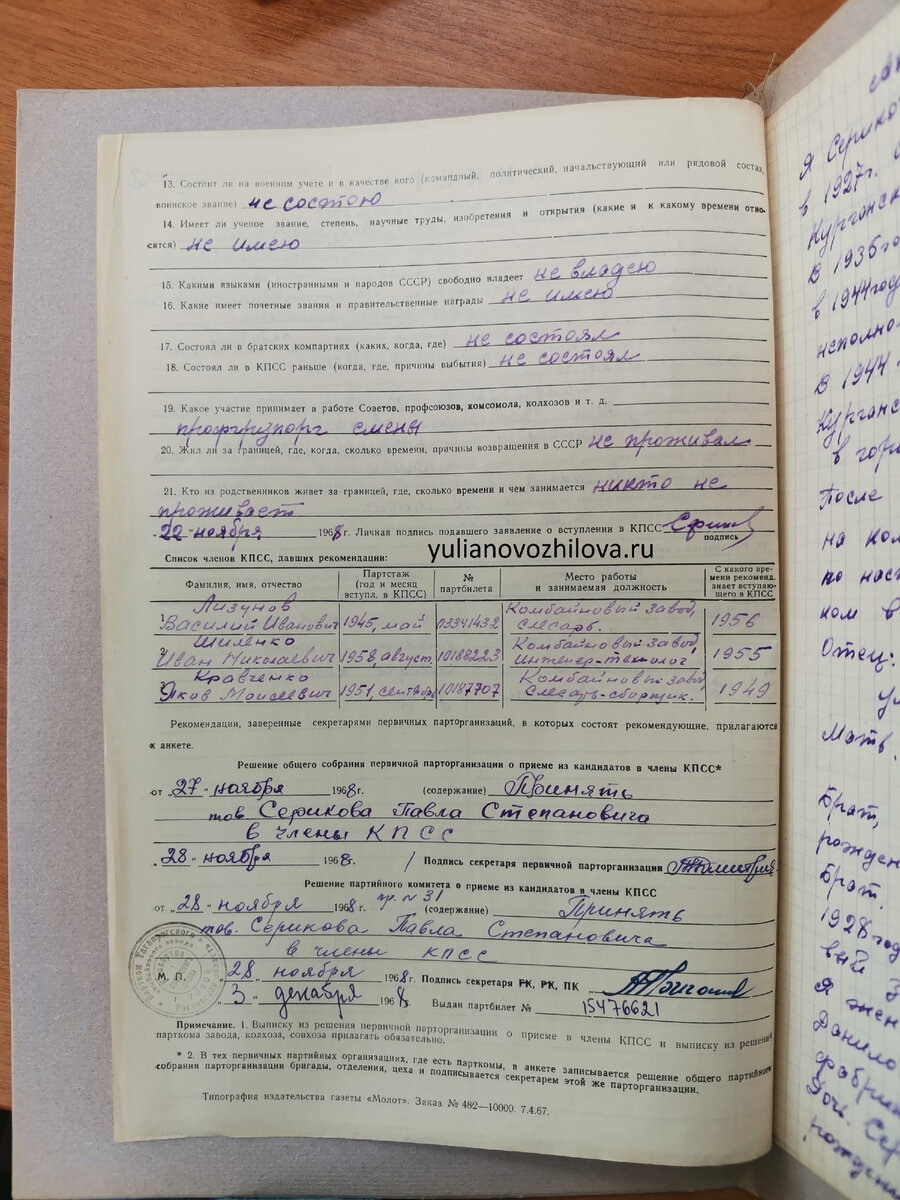 13. Состоит ли на военном учете и в качестве кого (командный, политический, начальствующий или рядовой состав,
воинское звание) не состою
14. Имеет ли ученое звание, степень, научные труды, изобретения и открытия (какие и к какому времени отно-
сятся) не имею
15. Какими языками (иностранными и народов СССР) свободно владеет не владею
16. Какие имеет почетные звания и правительственные награды не имею
17. Состоял ли в братских компартиях (каких, когда, где) не состоял
18. Состоял ли в КПСС раньше (когда, где, причины выбытия) не состоял
19. Какое участие принимает в работе Советов, профсоюзов, комсомола, колхозов и т. д.
профгрупорг смены
20. Жил ли за границей, где, когда, сколько времени, причины возвращения в СССР не проживал
21. Кто из родственников живет за границей, где, сколько времени и чем занимается никто не
проживает
22 ноября 1968 г. Личная подпись подавшего заявление о вступлении в КПСС
подпись
yulianovozhilova.ru
Список членов КПСС, давших рекомендации:
Фамилия, имя, отчество Партстаж (год и месяц вступл. в КПСС) № партбилета Место работы и занимаемая должность С какого вре- мени рекоменд. знает вступаю- щего в КПСС
1 Лизунов Василий Иванович 1945, май 03341432 Комбайновый завод, слесарь. 1956
2 Шиленко Иван Николаевич 1958, август 10188223 Комбайновый завод, инженер-технолог 1955
3 Кравченко Яков Моисеевич 1951, сентябрь 10187707 Комбайновый завод, слесарь-сборщик. 1949
Рекомендации, заверенные секретарями первичных парторганизаций, в которых состоят рекомендующие, прилагаются
к анкете.
Решение общего собрания первичной парторганизации о приеме из кандидатов в члены КПСС*
от „27 „ ноября 1968 г. (содержание) Принять
тов Серикова Павла Степановича
в члены КПСС
„28 „ ноября 1968 г. Подпись секретаря первичной парторганизации
Решение партийного комитета о приеме из кандидатов в члены КПСС
от „28 „ ноября 1968 г. пр. № 31 (содержание) Принять
тов. Серикова Павла Степановича
в члены КПСС
М. П. „28 „ ноября 1968 г. Подпись секретаря РК, РК, ПК
„3 „ декабря 1968 Выдан партбилет № 15476621
Примечание. 1. Выписку из решения первичной парторганизации о приеме в члены КПСС и выписку из решения
парткома завода, колхоза, совхоза прилагать обязательно.
* 2. В тех первичных партийных организациях, где есть парткомы, в анкете записывается решение общего партийного
собрания парторганизации бригады, отделения, цеха и подписывается секретарем этой же парторганизации.
Типография издательства газеты «Молот». Заказ № 482—10000. 7.4.67.
Я Серико
в 1927г.
Курганск
В 1935го
в 1944год
исполно-
В 1944
Курганс
в гор
После
на ком
по наст
ком в
Отец:
Мать.
Брат,
рожден
Брат.
1928 год
вый
Я жен
Данило
фабри
Доч. Се
рожден